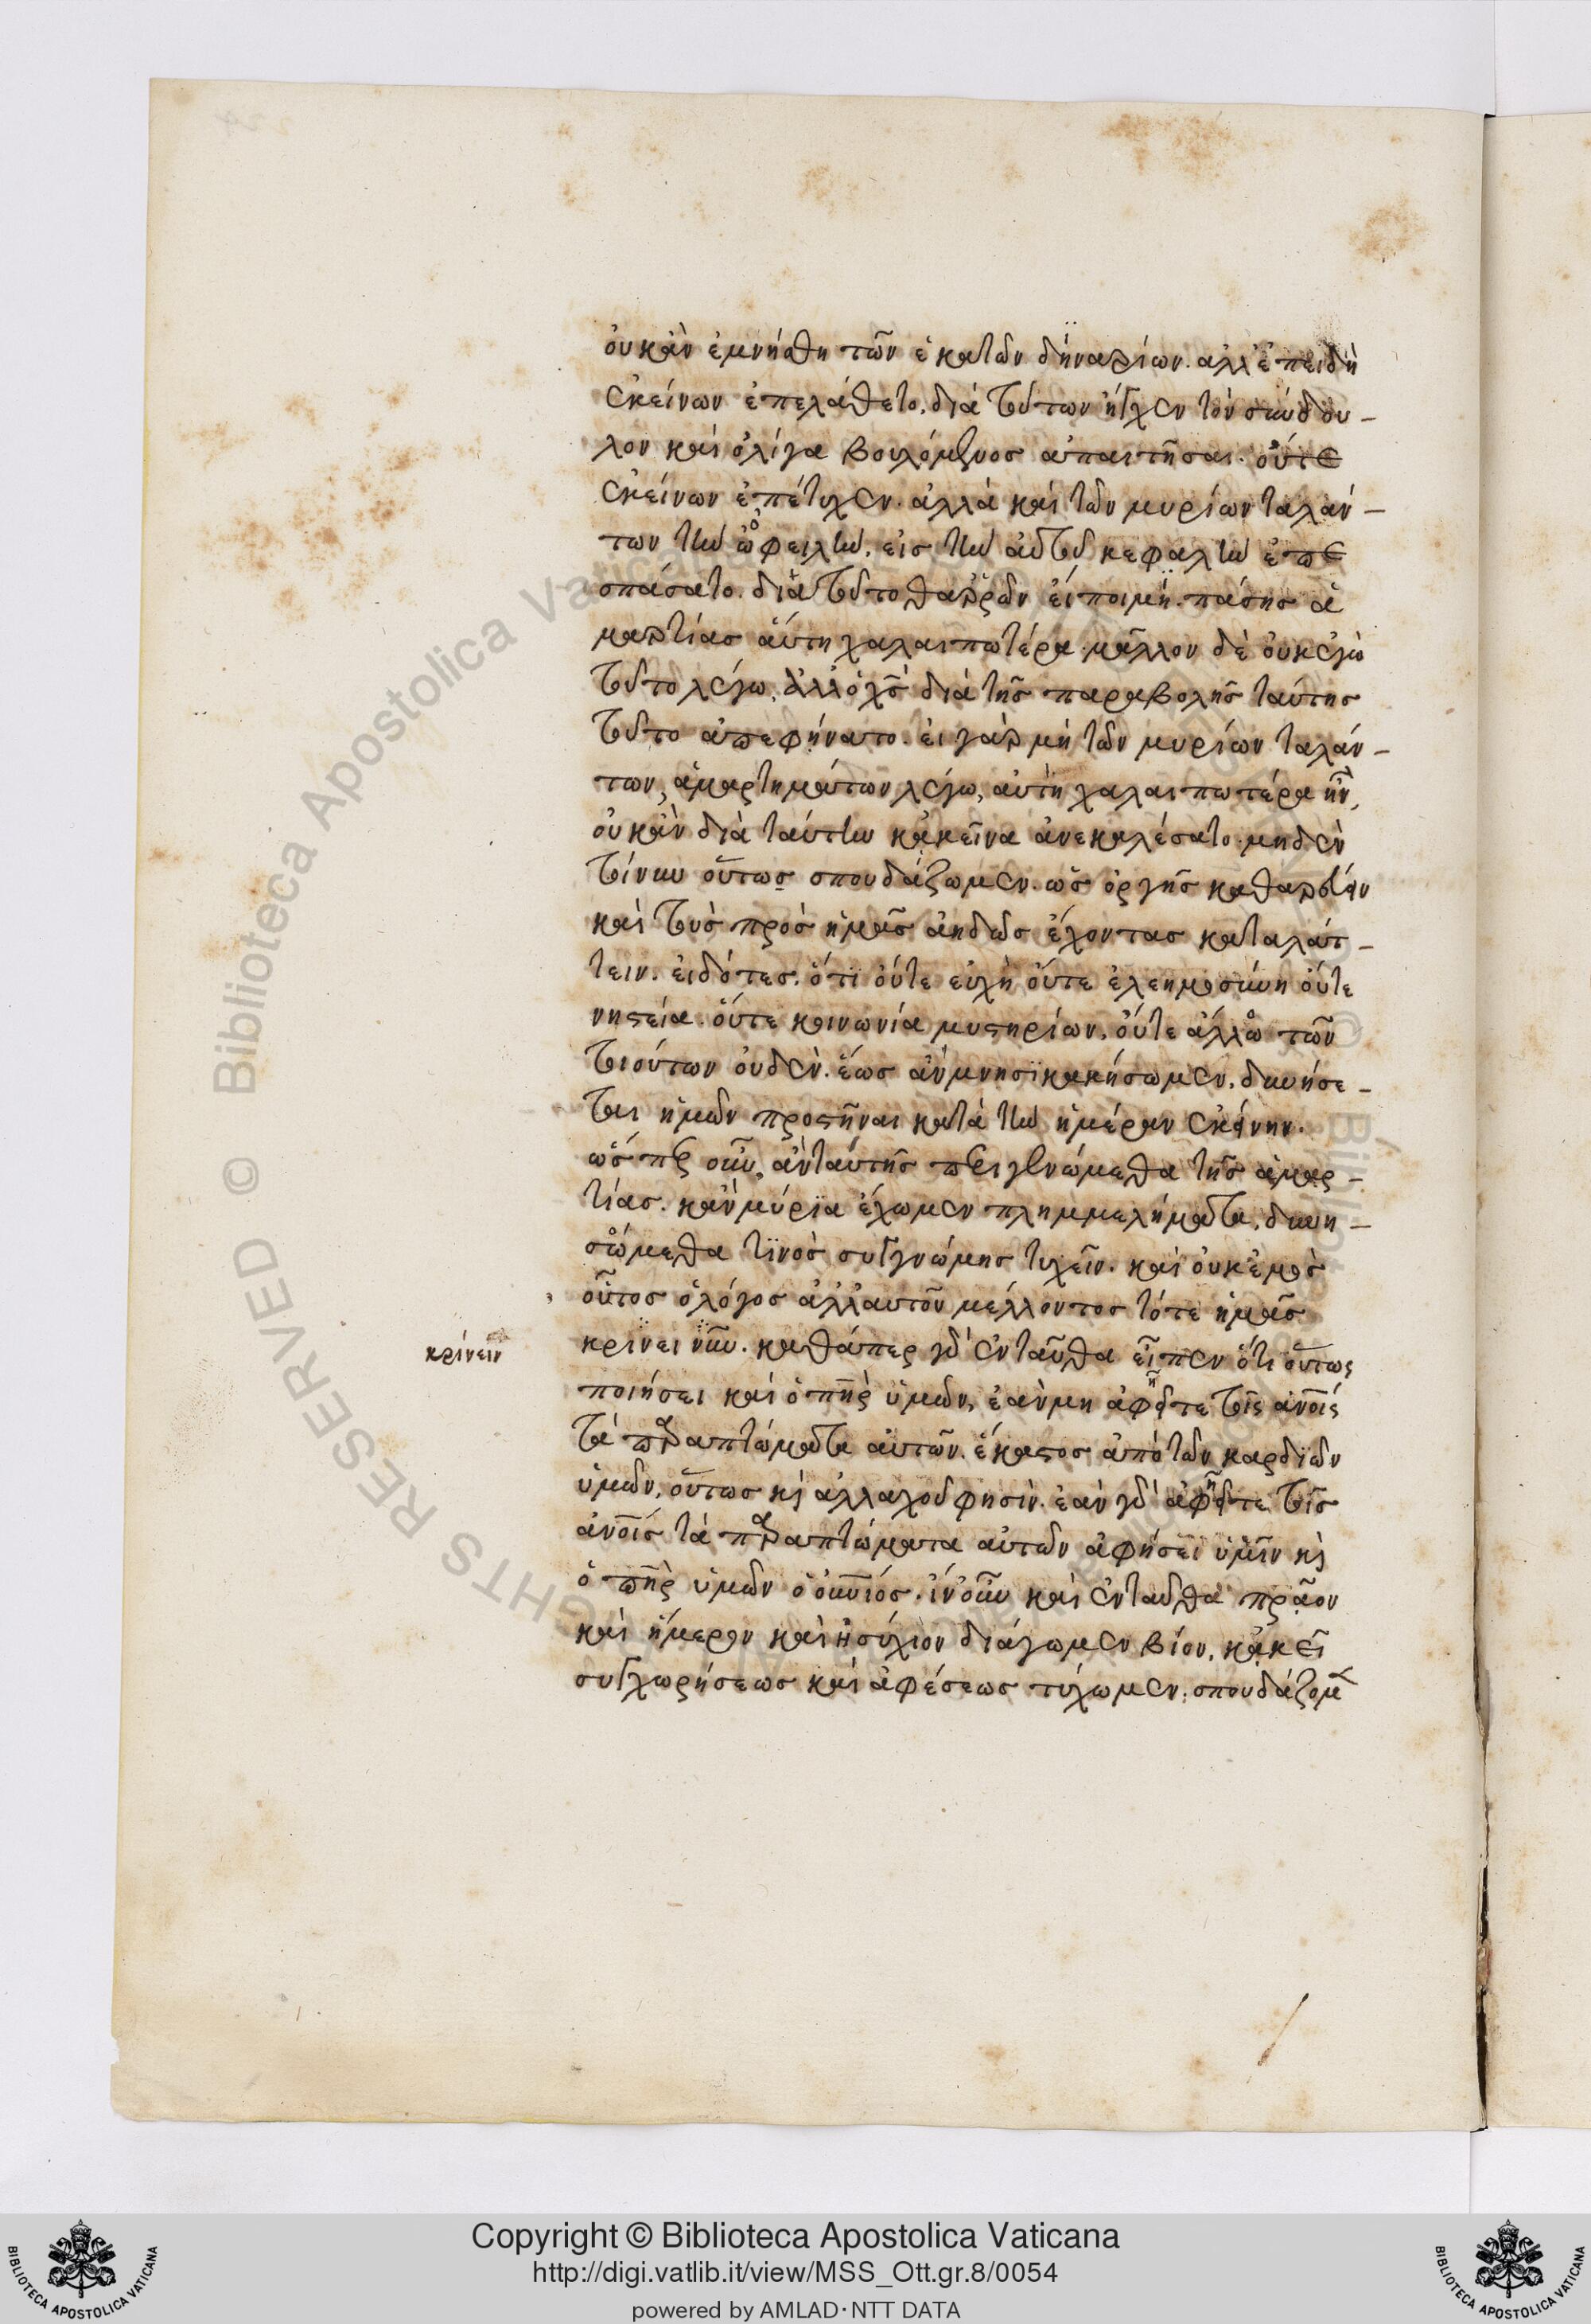 οὐκ ἂν ἐμνήσθη τῶν ἑκατὸν δηναρίων. ἀλλ' ἐπειδὴ
ἐκείνων ἐπελάθετο, διὰ τούτων ἦγχεν τὸν σύνδου-
λον καὶ ὀλίγα βουλόμενος ἀπαιτῆσαι. οὔτε
ἐκείνων ἐπέτυχεν. ἀλλὰ καὶ τῶν μυρίων ταλάν-
των τὴν ὠφειλὴν, εἰς τὴν αὐτοῦ κεφαλὴν ἐπε
σπάσατο. διὰ τοῦτο θαρρῶν εἴποιμι. πάσης ἁ
μαρτίας αὕτη χαλαιπωτέρα. μᾶλλον δὲ οὐκ ἐγὼ
τοῦτο λέγω, ἀλλ' ὁ χς διὰ τῆς παραβολῆς ταύτης
τοῦτο ἀπεφήνατο. εἰ γὰρ μὴ τῶν μυρίων ταλάν-
των, ἁμαρτημάτων λέγω, αὐτὴ χαλαιπωτέρα ἦν,
οὐκ ἂν διὰ ταύτην κἀκεῖνα ἀνεκαλέσατο. μηδὲν
τοίνυν οὕτως σπουδάζωμεν. ὡς ὀργῆς καθαρεύειν
καὶ τοὺς πρὸς ἡμᾶς ἀηδῶς ἔχοντας καταλάτ-
τειν. εἰδότες. ὅτι οὔτε εὐχὴ οὔτε ἐλεημοσύνη οὔτε
νηστεία. οὔτε κοινωνία μυστηρίων, οὔτε ἄλλω τῶν
τοιούτων οὐδὲν. ἕως ἂν μνησικακήσωμεν. δυνήσε-
ται ἡμῶν προστῆναι κατὰ τὴν ἡμέραν ἐκείνην.
ὥσπερ οὖν, ἂν ταύτης περιγενώμεθα τῆς ἁμαρ-
τίας. κἂν μύρια ἔχωμεν πλημμελήματα, δυνη-
σώμεθα τινὸς συγγνώμης τυχεῖν. καὶ οὐκ ἐμὸς
οὗτος ὁ λόγος ἀλλ' αυτοῦ μέλλοντος τότε ἡμᾶς
κρίνει νῦν. καθάπερ γὰρ ἐνταῦθα εἶπεν ὅτι οὕτως
κρίνειν
ποιήσει καὶ ὁ πηρ ὑμῶν, ἐὰν μη ἀφῆτε τοῖς ἀνοις
τὰ παραπτώματα αὐτῶν. ἕκαστος ἀπὸ τῶν καρδιῶν
ὑμῶν, οὕτως κὶ ἀλλαχοῦ φησὶν. ἐὰν γὰρ ἀφῆτε τοῖς
ἀνοις τὰ παραπτώματα αὐτῶν ἀφήσει ὑμῖν κὶ
ὁ πηρ ὑμῶν ὁ οὐνιός. ἵν' οὖν καὶ ἐνταῦθα πρᾶον
καὶ ἥμερον καὶ ἡσύχιον διάγωμεν βίον, κἀκεῖ
συγχωρήσεως καὶ ἀφέσεως τύχωμεν. σπουδάζομ
Copyright © Biblioteca Apostolica Vaticana
http://digi.vatlib.it/view/MSS_Ott.gr.8/0054
powered by AMLAD·NTT DATA